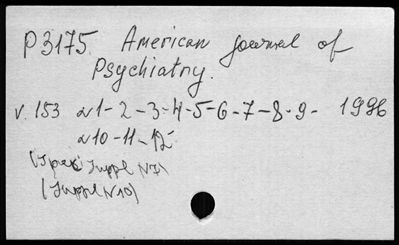 P3175. American Journal of
Psychiatry.
v. 153 N1-2-3-4-5-6-7-8-9- 1996
N10-11-12
Suppl N7)
(Suppl N10)